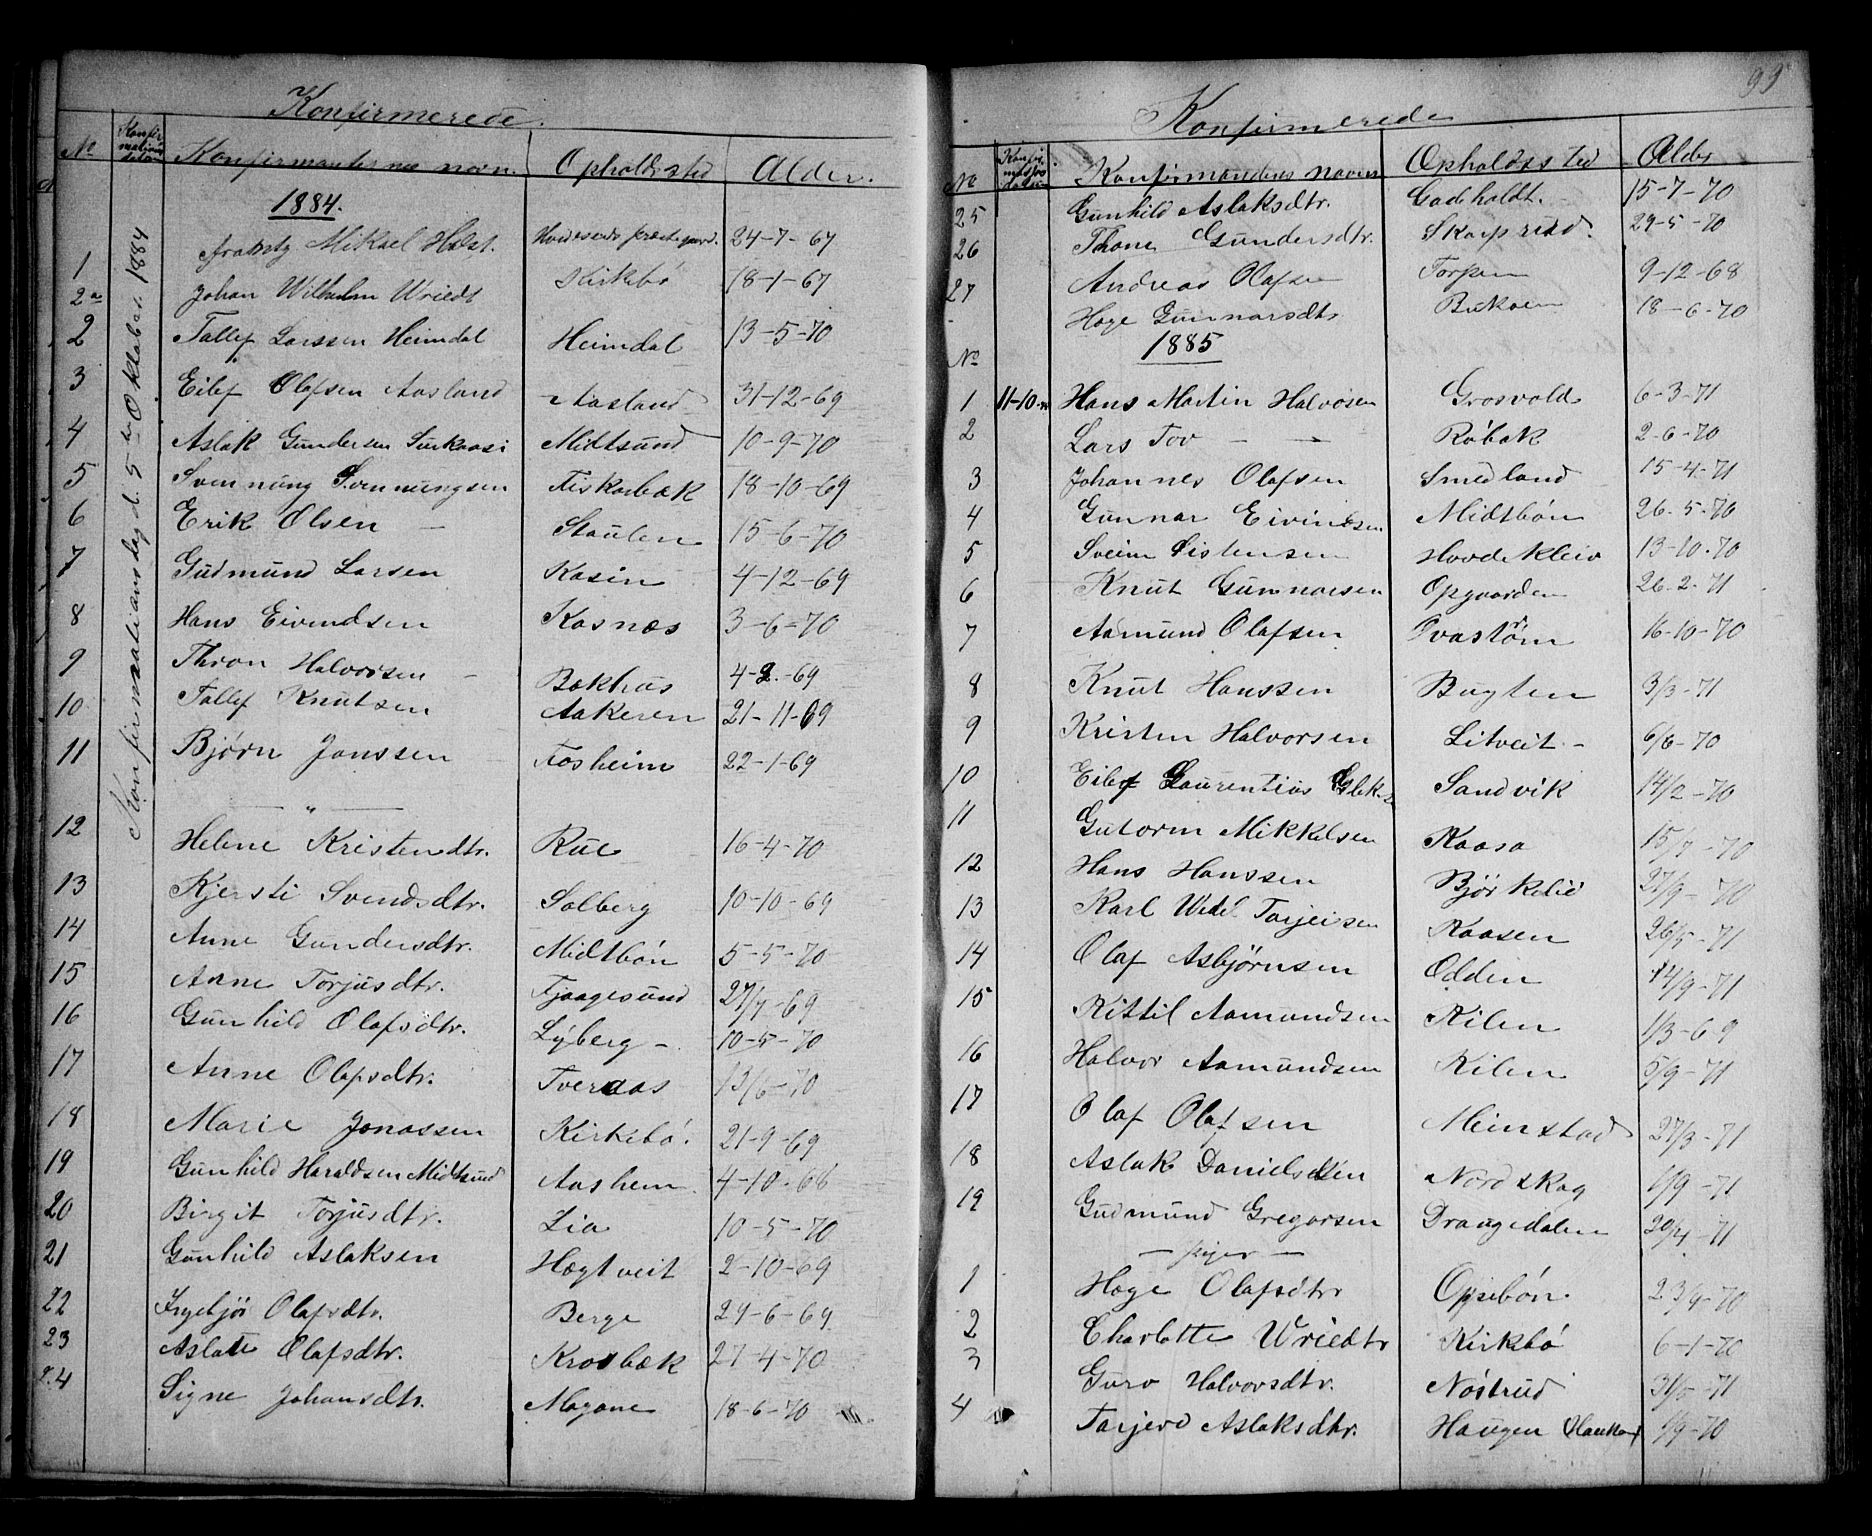 Konfirmerede.
No Konfirmationsdatum Konfirmanternes navn. Opholdssted Alder.
1884.
Konfirmationsdag d. 5te Oktober 1884
1 Mikael Holst. Hvideseids præstegaard. 24-7-67
2a Johan Wilhelm Wriedt Kirkebø 18-1-67
2 Tallef Larssen Heimdal Heimdal 13-5-70
3 Eilef Olafsen Aasland Aasland 31-12-69
4 Aslak Gundersen Midtsund 10-9-70
5 Svennung Svennungsen Fiskarbæk 18-10-69
6 Erik Olsen Staulen 15-6-70
7 Gudmund Larsen Kasin 4-12-69
8 Hans Eivendsen Kosnæs 3-6-70
9 Thron Halvorsen Bakhus 4-2-69
10 Tallef Knutsen Aakeren 21-11-69
11 Bjørn Jonssen Aasheim 22-1-69
— " —
12 Helene Kristendtr. Rue 16-4-70
13 Kjersti Svendsdtr. Solberg 10-10-69
14 Anne Gundersdtr. Midtbøn 5-5-70
15 Anne Torjusdtr. Fjaagesund 27/7-69
16 Gunhild Olafsdtr. Lyberg - 10-5-70
17 Anne Olafsdtr. Tveraas 13/6-70
18 Marie Jonassen Kirkebø. 21-9-69
19 Gunhild Haraldsen Midtsund Aashem 4-10-68
20 Birgit Torjusdtr. Lia 10-5-70
21 Gunhild Aslaksen Hægtveit 2-10-69
22 Ingebjør Olafsdtr. Berge 29-6-69
23 Aslaug Olafsdtr. Krosbæk 27-4-70
24 Signe Johansdtr. Mogane 18-6-70
99
Konfirmerede
No Konfirmationsdatum Konfirmandens navn Opholdssted Alder
25 Gunhild Aslaksdtr. Gadholdt. 15-7-70
26 Thone Gundersdtr. Skarprud. 29-5-70
27 Andreas Olafsen Torpen 9-12-68
- Hæge Gunnarsdtr Bukoen 18-6-70
No 1885
1 11-10 Hans Martin Halvosen Grosvold 6-3-71
2 Lars Tov — — Røbak 2-6-70
3 Johannes Olafsen Smedland 15-4-71
4 Gunnar Eivindsen Midtbøn 26-5-70
5 Sveinn Sistensen Hovdekleiv 13-10-70
6 Knut Gunnarsen Opgaarden 26-2-71
7 Aamund Olafsen Tvastøm 16-10-70
8 Knut Hanssen Bugten 3/3-71
9 Kristen Halvorsen Litveit - 6/6-70
10 Eilef Laurentius Sandvik 14/2-70
11 Gutorm Mikkelsen Kaasa 15/7-70
12 Hans Hanssen Bjørkelid 27/9-70
13 Karl Wedel Tarjeisen Kaasen 26/5-71
14 Olaf Asbjørnsen Odden 14/9-71
15 Kittil Aamundsen Kilen 1/3-69
16 Halvor Aamundsen Kilen 5/9-71
17 Olaf Olafsen Meinstad 27/3-71
18 Aslak Danielsen Nordskog 1/9-71
19 Gudmund Gregarsen Draugedalen 20/4-71
— piger —
1 Hæge Olafsdtr Opsebøn. 23/9-70
2 Charlotte Wriedtr Kirkebø 6-1-70
3 Guro Halvorsdtr. Nøstrud 31/5-71
4 Tarjerd Aslaksdtr. Haugen 1/9-70